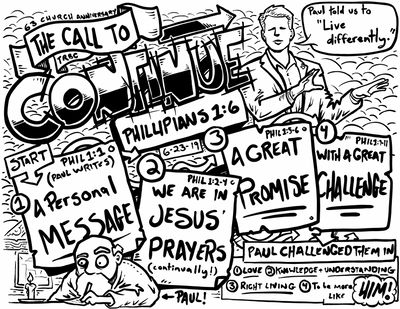 63 CHURCH ANNIVERSARY
THE CALL TO
TRBC
CONTINUE
PHILLIPIANS 1:6
6-23-19
Paul told us to
"Live
differently."
START
1
PHIL 1:1
(PAUL WRITES)
A Personal
MESSAGE
2
PHIL 1:2-4
WE ARE IN
JESUS'
PRAYERS
(continually!)
3
PHIL 1:5-6
A GREAT
PROMISE
4
PHIL 1:7-11
WITH A GREAT
CHALLENGE
PAUL CHALLENGED THEM IN
1 LOVE 2 KNOWLEDGE + UNDERSTANDING
3 RIGHT LIVING 4 To be more
Like
HIM!
PAUL!